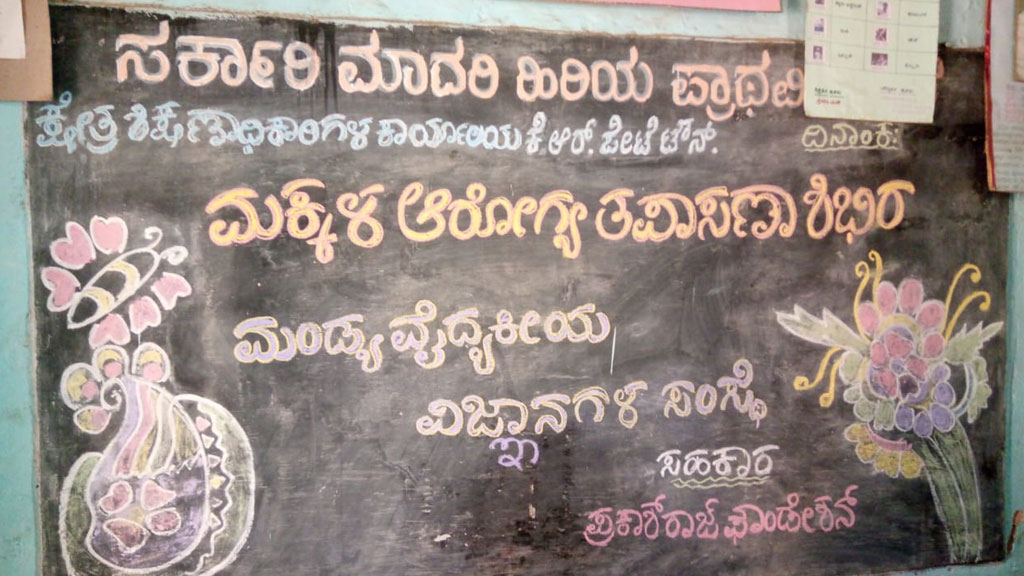 ಸರ್ಕಾರಿ ಮಾದರಿ ಹಿರಿಯ
ಕ್ಷೇತ್ರ ಶಿಕ್ಷಣಾಧಿಕಾರಿಗಳ ಕಾರ್ಯಾಲಯ ಕೆ.ಆರ್. ಪೇಟೆ ಟೌನ್.
ದಿನಾಂಕ:
ಮಕ್ಕಳ ಆರೋಗ್ಯ ತಪಾಸಣಾ ಶಿಬಿರ
ಮಂಡ್ಯ ವೈದ್ಯಕೀಯ
ವಿಜ್ಞಾನಗಳ ಸಂಸ್ಥೆ
ಸಹಕಾರ
ಪ್ರಕಾಶ್‌ರಾಜ್ ಫೌಂಡೇಶನ್